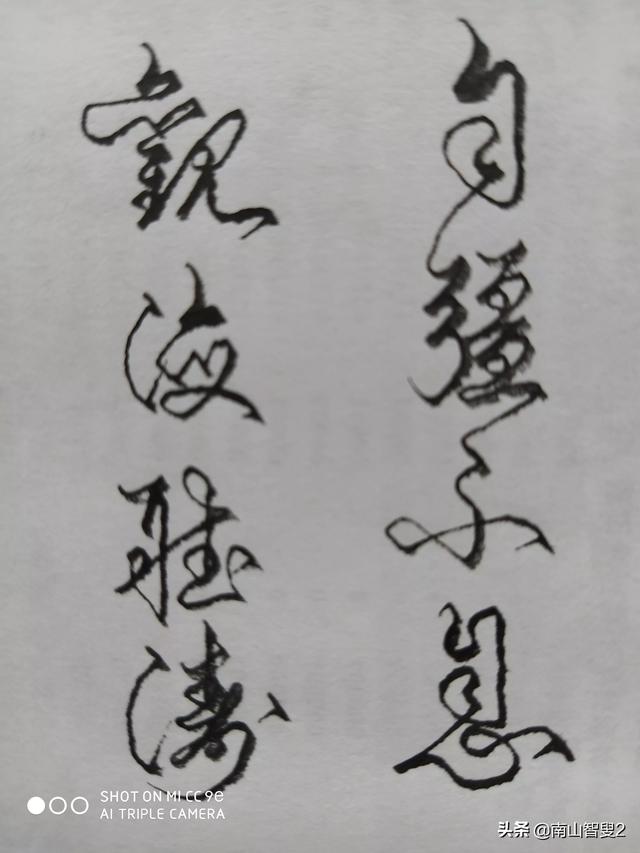 自彊不息
觀海聽濤
SHOT ON MI CC 9e
AI TRIPLE CAMERA
头条 @南山智叟2